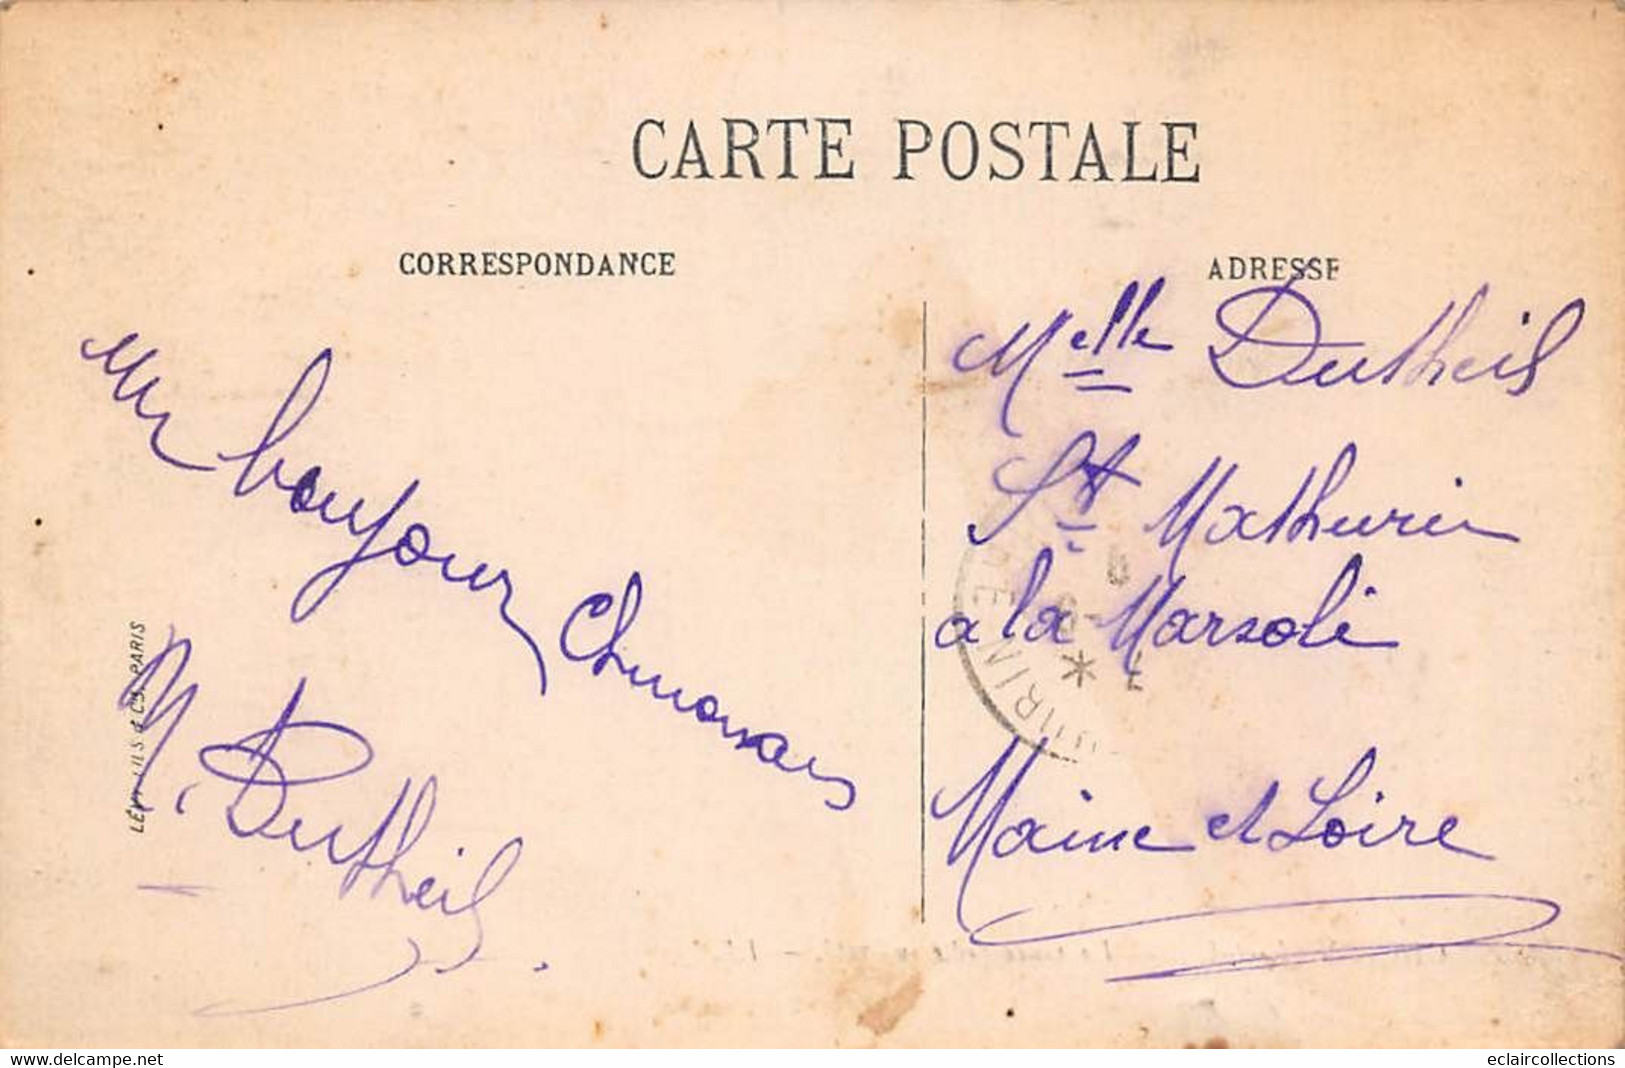 CARTE POSTALE
CORRESPONDANCE
ADRESSE
un bonjour
M. Dutheil
LÉVY FILS & Cie, PARIS
Melle Dutheil
St Mathurin
a la Marsoli
Maine et Loire
www.delcampe.net
eclaircollections